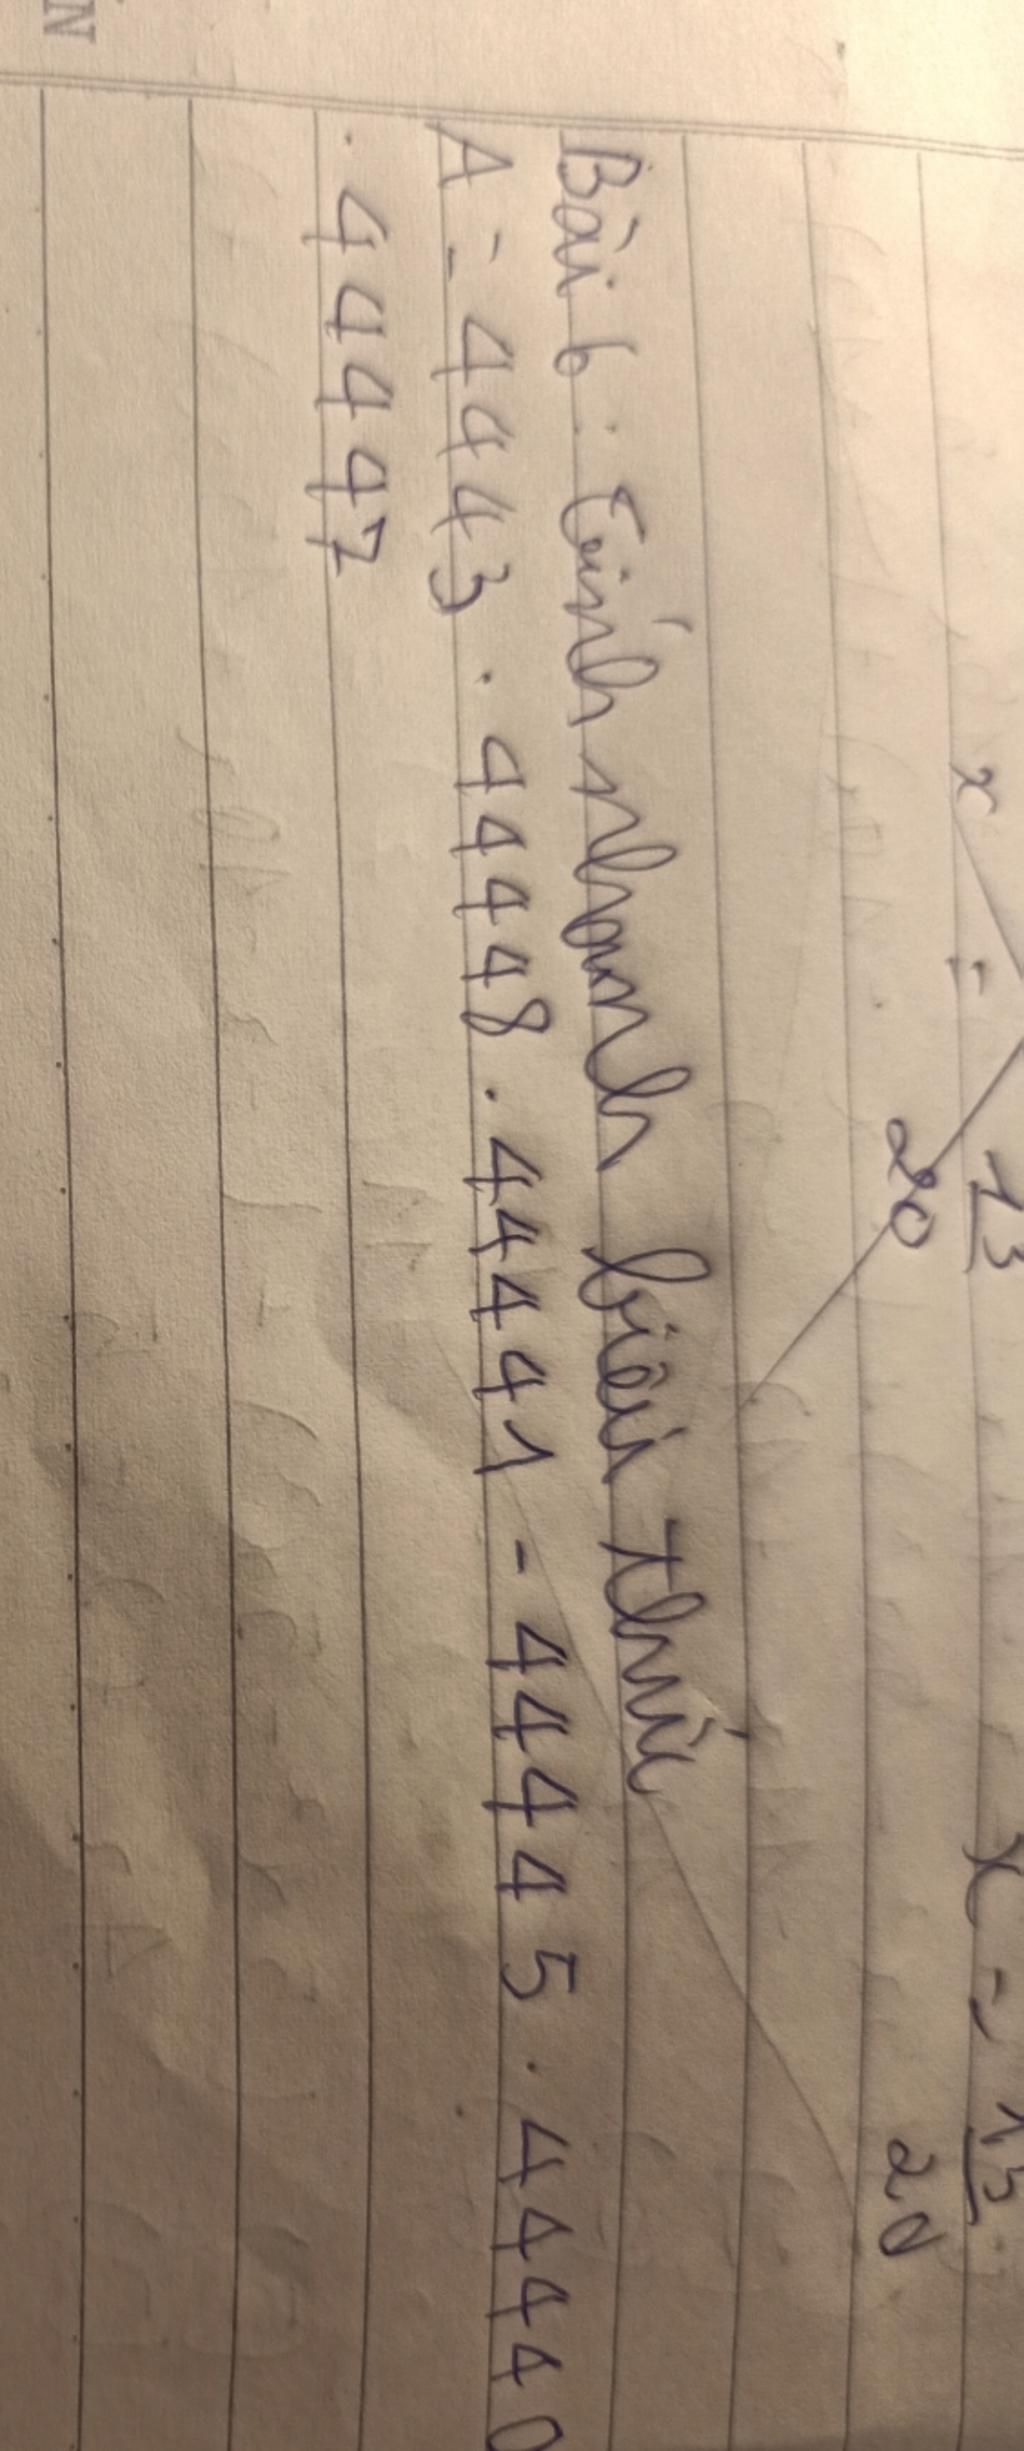 x = 13 x =
20 20
Bài 6: Tính nhanh biểu thức
A = 4443 . 44448 . 44441 - 44445 . 44440
. 44447